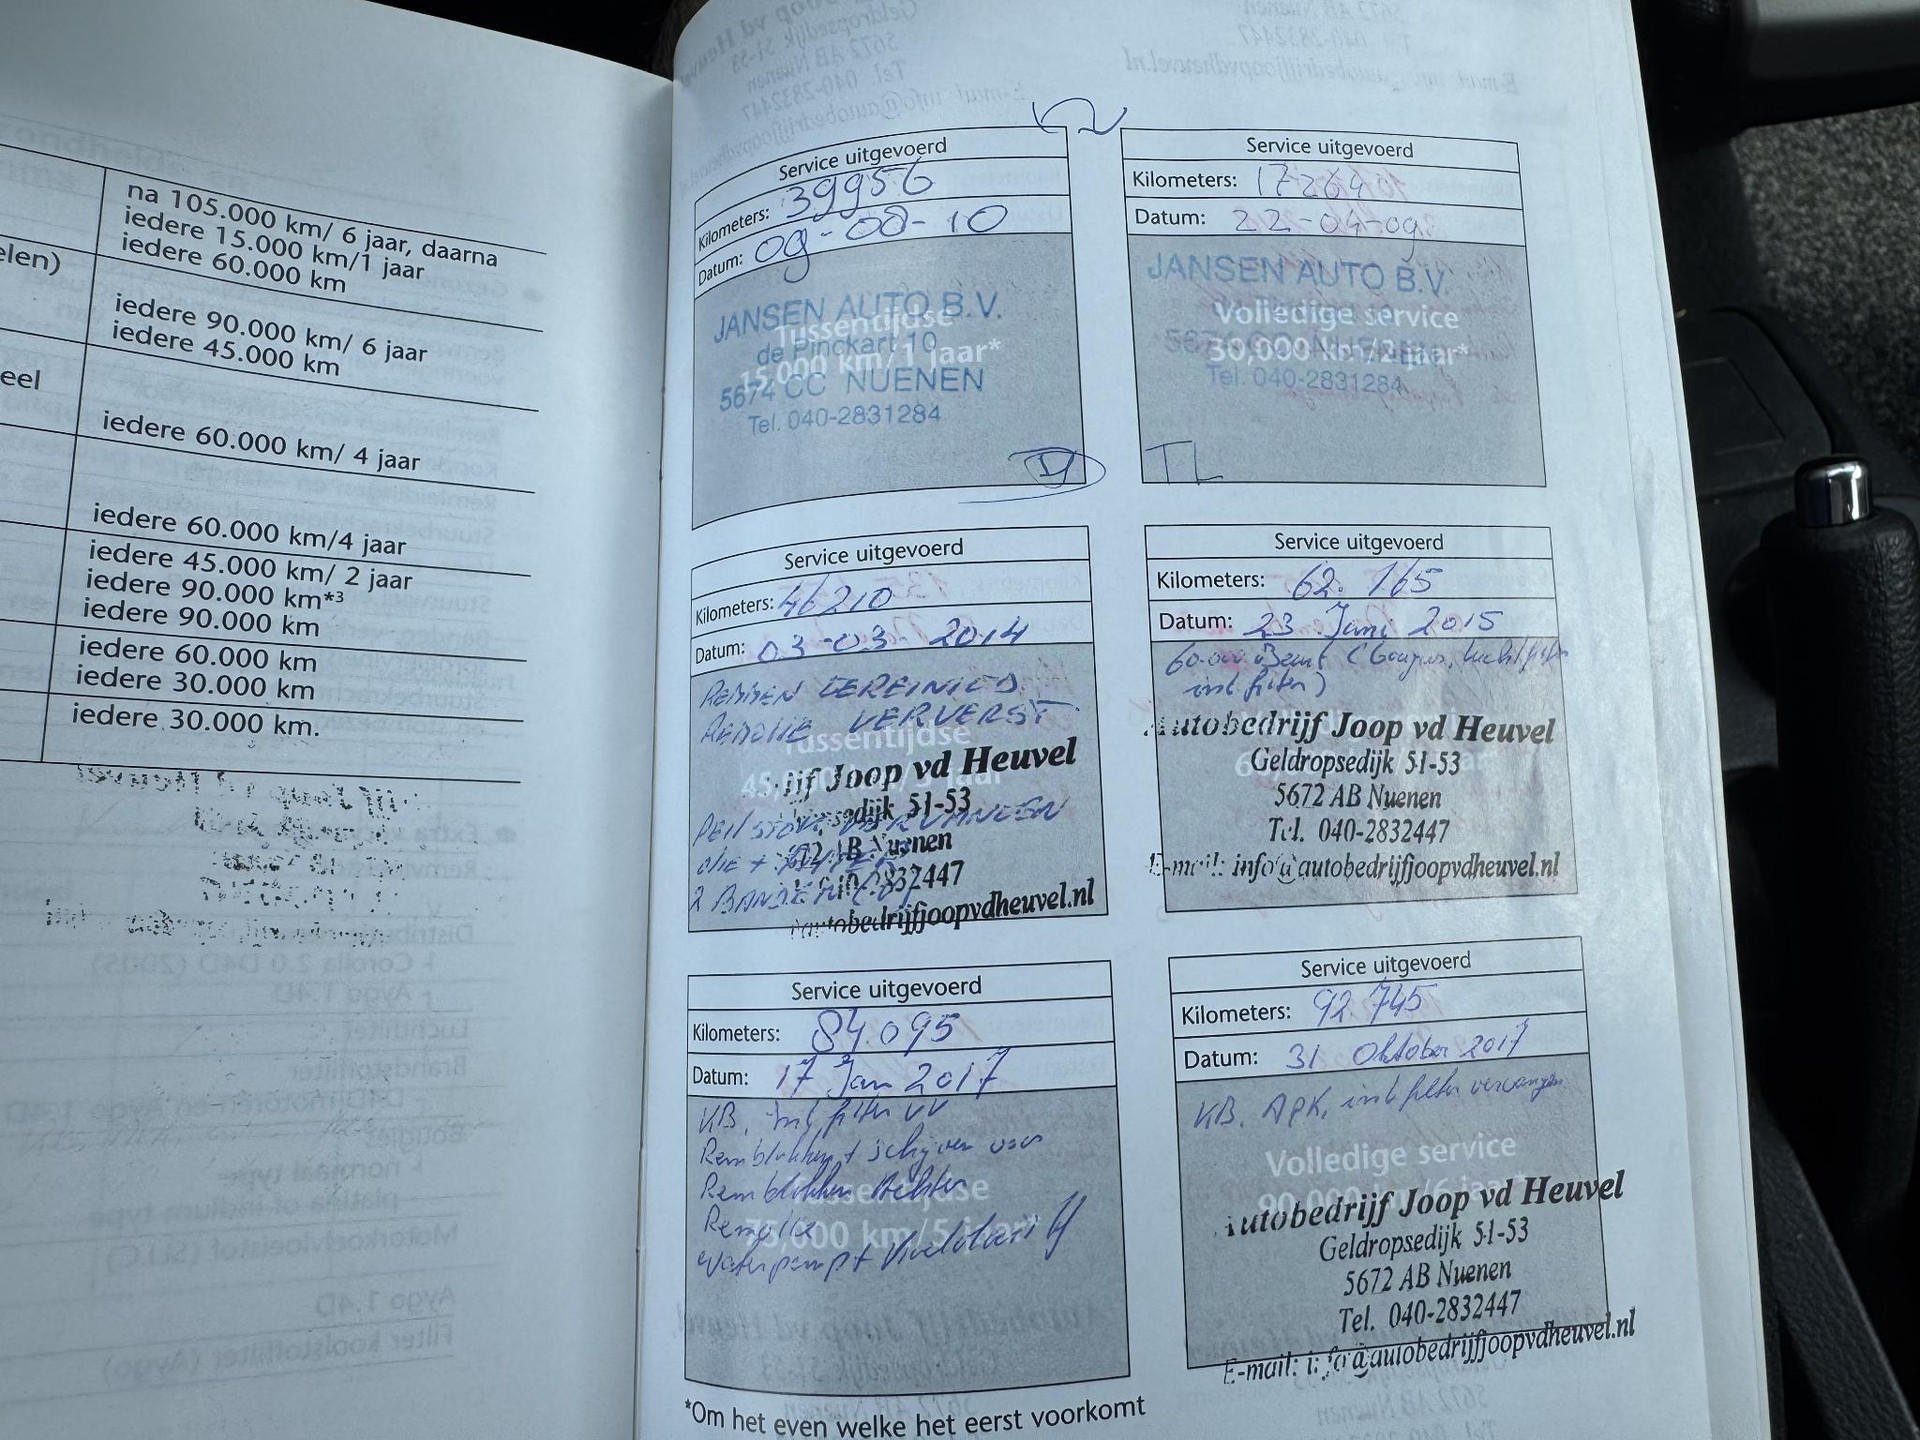 na 105.000 km/ 6 jaar, daarna
iedere 15.000 km/1 jaar
elen)
iedere 60.000 km
iedere 90.000 km/ 6 jaar
iedere 45.000 km
eel
iedere 60.000 km/ 4 jaar
iedere 60.000 km/4 jaar
iedere 45.000 km/ 2 jaar
iedere 90.000 km*³
iedere 90.000 km
iedere 60.000 km
iedere 30.000 km
iedere 30.000 km.
Service uitgevoerd
Kilometers: 39956
Datum: 09-08-10
JANSEN AUTO B.V.
Tussentijdse
de Pinckart 10
15,000 km/1 jaar*
5674 CC NUENEN
Tel. 040-2831284
Service uitgevoerd
Kilometers: 17264
Datum: 22-04-09
JANSEN AUTO B.V.
Volledige service
30,000 km/2 jaar*
Tel. 040-2831284
TL
Service uitgevoerd
Kilometers: 46210
Datum: 03-03-2014
REMMEN GEREINIGD
REMOLIE VERVERST
Tussentijdse
ijf Joop vd Heuvel
sedijk 51-53
PEILSTOK VERVANGEN
AB Nuenen
OLIE +
2832447
2 BANDEN
autobedrijfjoopvdheuvel.nl
Service uitgevoerd
Kilometers: 62.165
Datum: 23 Juni 2015
60.000 Beurt (Bougies, luchtfilter
int filter)
Autobedrijf Joop vd Heuvel
Geldropsedijk 51-53
5672 AB Nuenen
Tel. 040-2832447
E-mail: info@autobedrijfjoopvdheuvel.nl
Service uitgevoerd
Kilometers: 84.095
Datum: 17 Jan 2017
KB, int filter vv
Remblokken + schijven voor
Remblokken Achter
Tussentijdse
Remolie
75,000 km/5 jaar*
Waterpomp +
Service uitgevoerd
Kilometers: 92.745
Datum: 31 Oktober 2017
KB, APK, int filter vervangen
Volledige service
90,000 km/6 jaar*
Autobedrijf Joop vd Heuvel
Geldropsedijk 51-53
5672 AB Nuenen
Tel. 040-2832447
E-mail: info@autobedrijfjoopvdheuvel.nl
*Om het even welke het eerst voorkomt